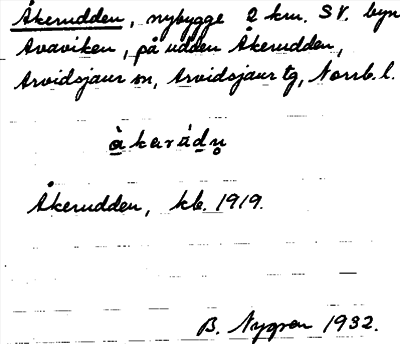 Åkerudden, nybygge 2 km. SV. byn
Avaviken, på udden Åkerudden,
Arvidsjaur sn, Arvidsjaur tg, Norrb. l.
Åkerudden, kb. 1919.
B. Nygren 1932.